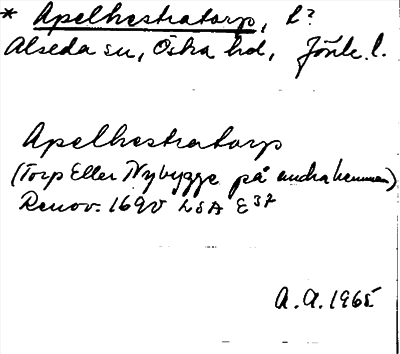 * Apelhestratorp, L?
Alseda sn, Östra hd, Jönk. l.
Apelhestratorp
(Torp Eller Nybygge på andra hemman)
Renov. 1690 LSA E37
A. A. 1965